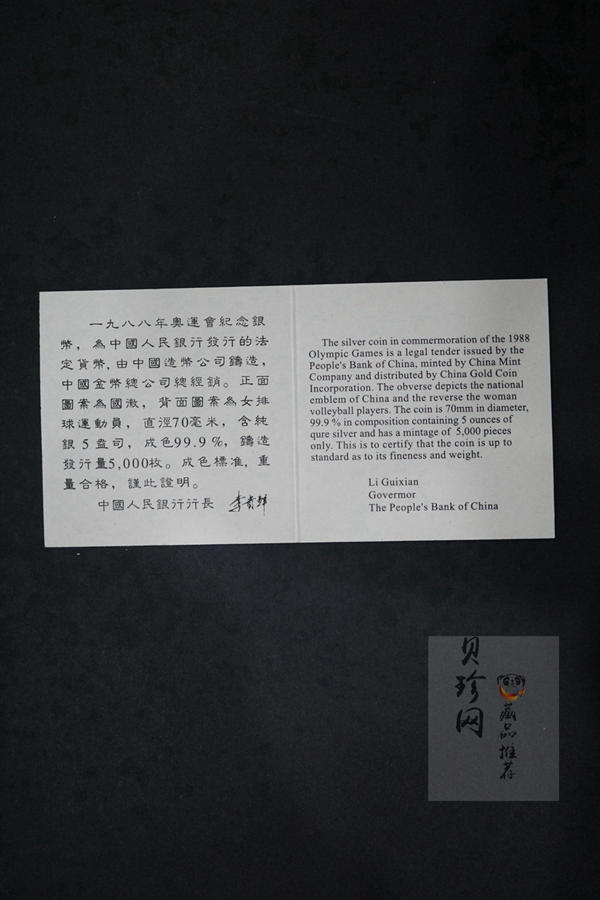 一九八八年奥運會紀念銀
幣，為中國人民銀行發行的法
定貨幣，由中國造幣公司鑄造，
中國金幣總公司總經銷。正面
圖案為國徽，背面圖案為女排
球運動員，直徑70毫米，含純
銀5盎司，成色99.9%，鑄造
發行量5,000枚。成色標准，重
量合格，謹此證明。
中國人民銀行行長 李貴鮮
The silver coin in commermoration of the 1988
Olympic Games is a legal tender issued by the
People's Bank of China, minted by China Mint
Company and distributed by China Gold Coin
Incorporation. The obverse depicts the national
emblem of China and the reverse the woman
volleyball players. The coin is 70mm in diameter,
99.9 % in composition containing 5 ounces of
qure silver and has a mintage of 5,000 pieces
only. This is to certify that the coin is up to
standard as to its fineness and weight.
Li Guixian
Govermor
The People's Bank of China
贝珍网
藏品推荐